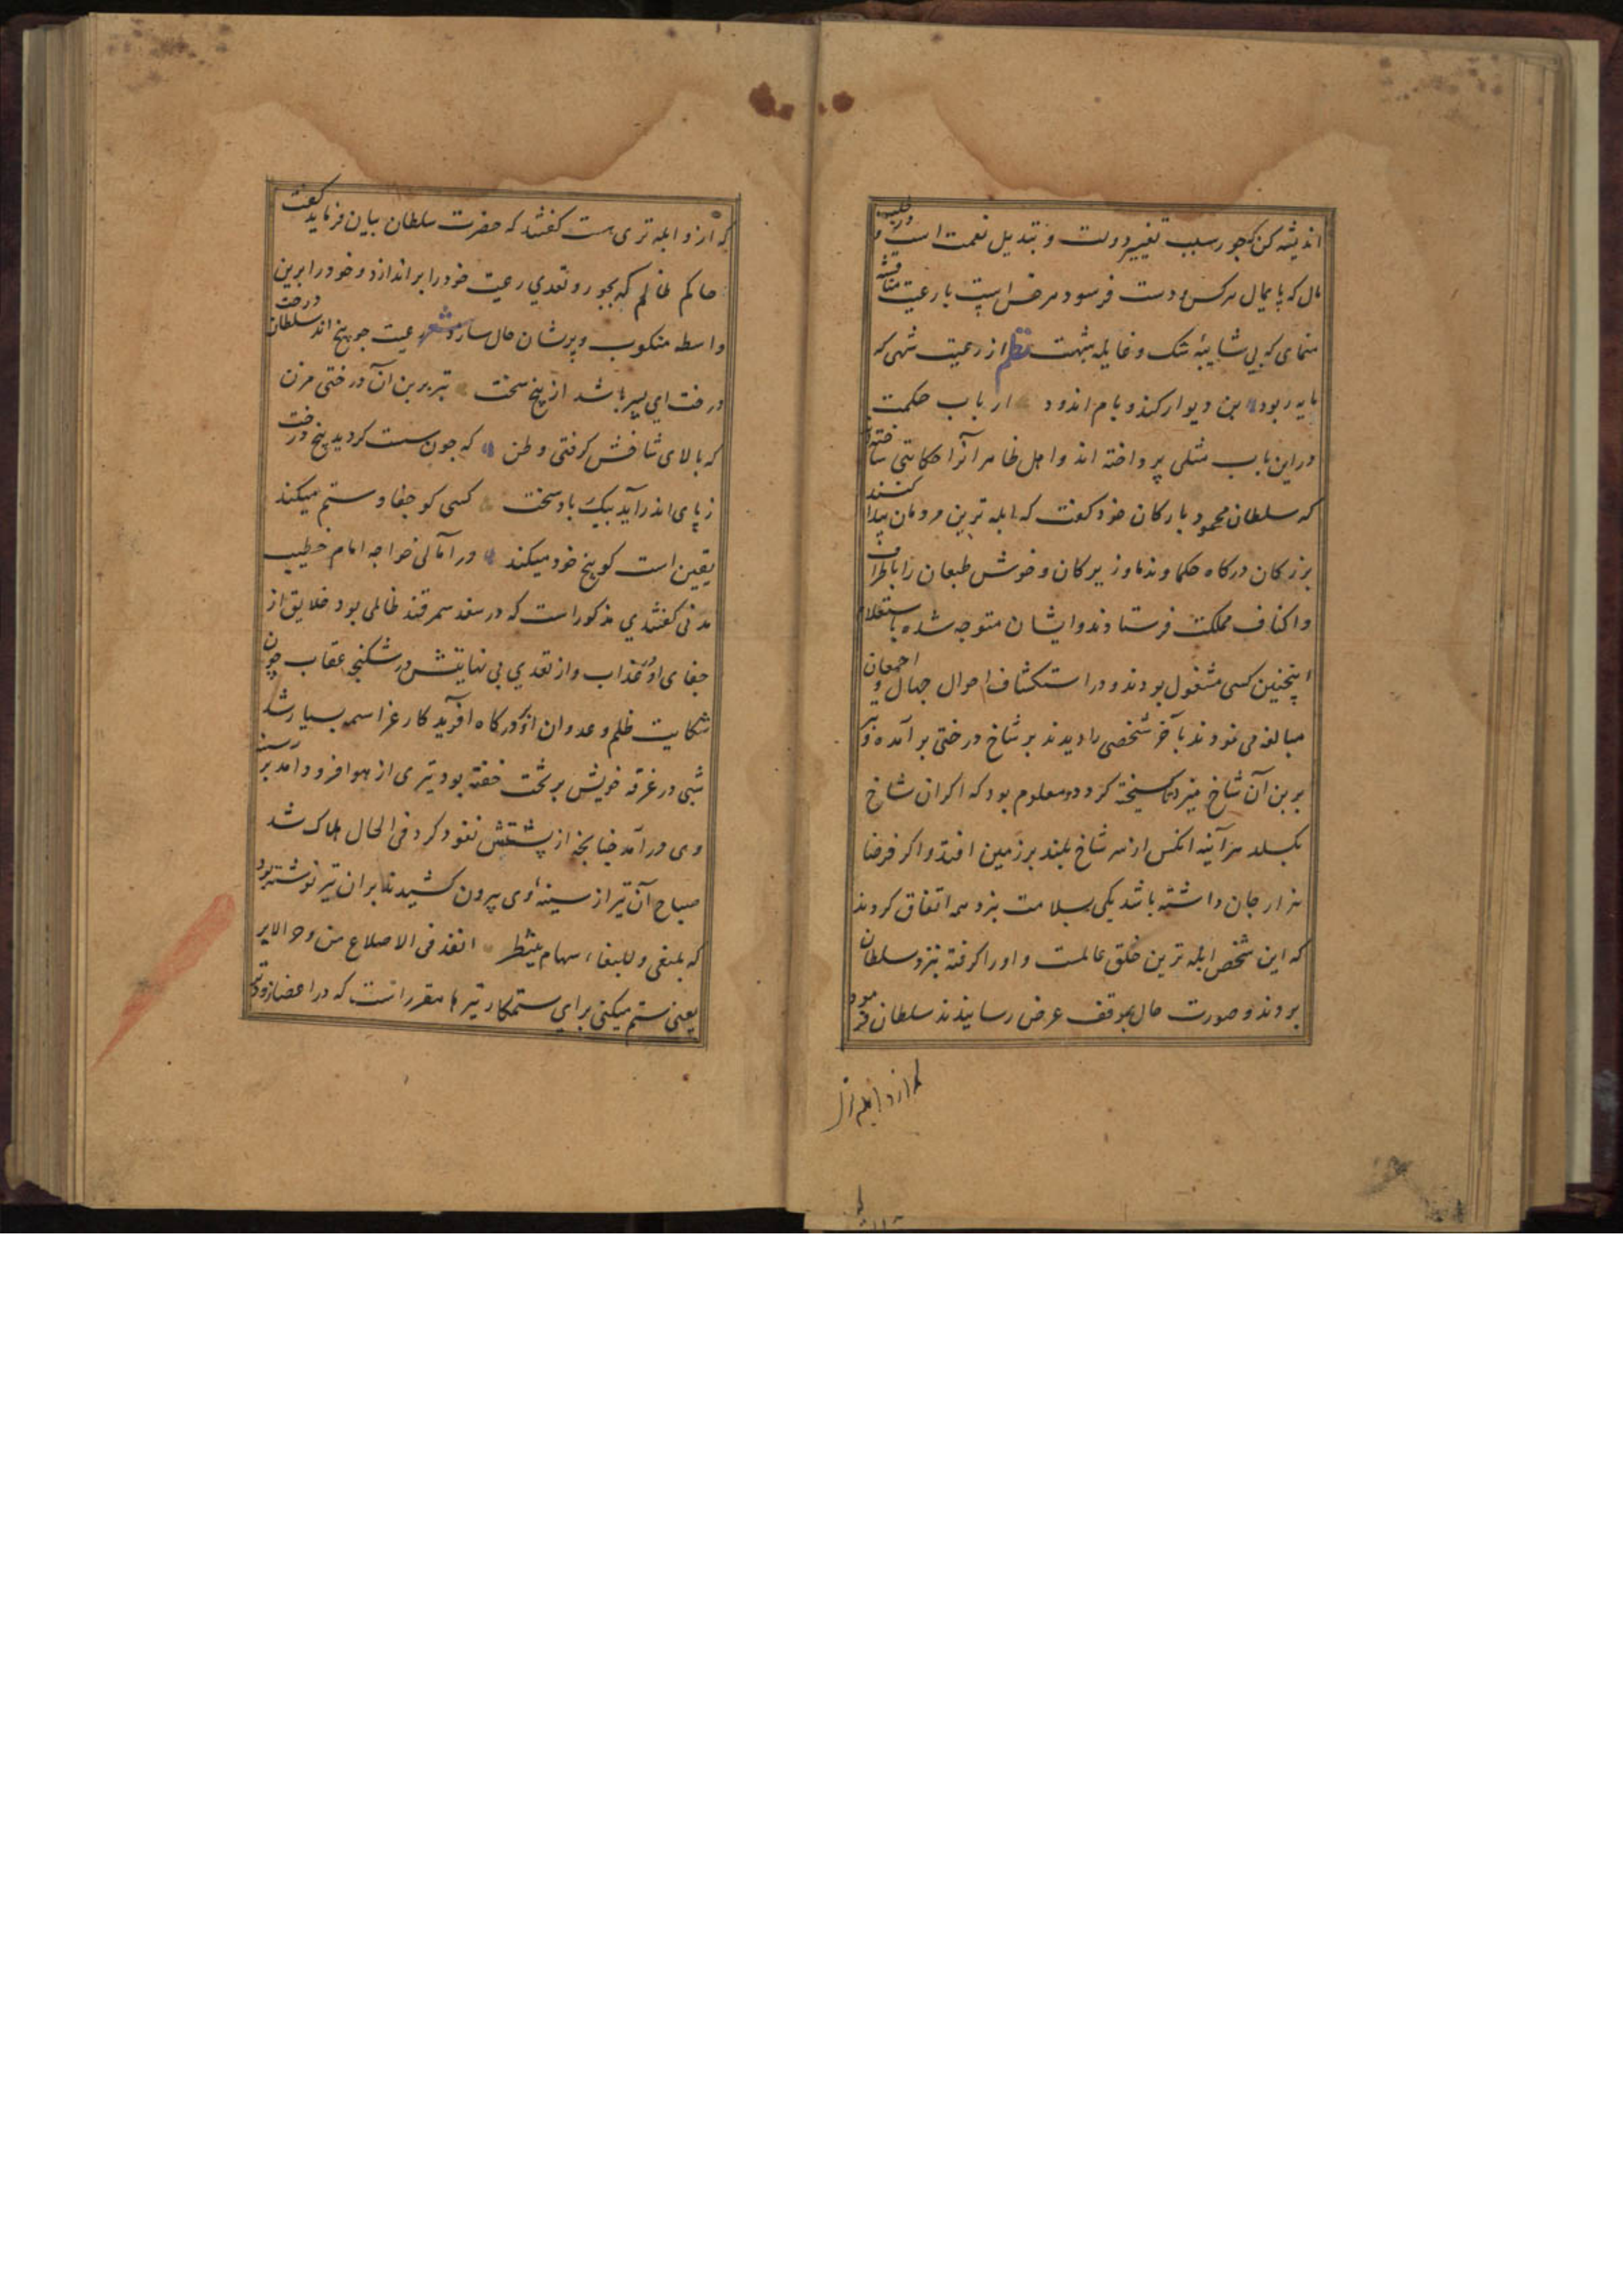 اندیشه کن که جور سبب تغییر دولت و تبدیل نعمت است و در طلب
مال که پایمال هر کس و دست فرسود هر خس است با رعیت مناقشه
منمای که بی شایبه شک و غایله شبهت نظم از رعیت شهی که
مایه ربود بن دیوار کند و بام اندود ارباب حکمت
در این باب مثلی پرداخته اند و اهل ظاهر آنرا حکایتی ساخته
که سلطان محمود بارکان خود کفت که ابله ترین مردمان پیدا کنند
بزرکان درکاه حکما و ندما و زیرکان و خوش طبعان را باطراف
و اکناف مملکت فرستادند و ایشان متوجه شده باستعلام
اینچنین کسی مشغول بودند و در استکشاف احوال جهال و امعان
مبالغه می نمودند بآخر شخصی را دیدند بر شاخ درختی برآمده و تبر
بر بن آن شاخ میزد تا کسیخته کردد و معلوم بود که اکر ان شاخ
بکسلد هر آینه انکس از سر شاخ بلند بر زمین افتد و اکر فرضا
هزار جان داشته باشد یکی بسلامت نبرد همه اتفاق کردند
که این شخص ابله ترین خلق عالمست و او را کرفته بنزد سلطان
بردند و صورت حال بموقف عرض رسانیدند سلطان فرمود
که از و ابله تر
که از و ابله تری هست کفتند که حضرت سلطان بیان فرماید کفت
حاکم ظالم که بجور و تعدی رعیت خود را براندازد و خود را برین
واسطه منکوب و پریشان حال سازد شعر رعیت جو بیخ اند و سلطان درخت
درخت ای پسر باشد از بیخ سخت تبر بر بن آن درختی مزن
که بالای شاخش کرفتی وطن که جون سست کردید بیخ درخت
ز پای اندر آید بیک باد سخت کسی کو جفا و ستم میکند
یقین است کو بیخ خود میکند در آمالی خواجه امام خطیب
مدنی کفشدی مذکور است که در سغد سمرقند ظالمی بود خلایق از
جفای او در عذاب و از تعدی بی نهایتش در شکنجه عقاب چون
شکایت ظلم و عدوان او بدرکاه آفریدکار عز اسمه بسیار شد
شبی در غرفه خویش بر تخت خفته بود تیری از هوا فرود آمد بر سینه
وی در آمد چنانجه از پشتش نفوذ کرد فی الحال هلاک شد
صباح آن تیر از سینه وی بیرون کشیدند بران تیر نوشته بود
که بلبغی و للبغاء سهام ینتظر انفذ فی الاضلاع من وخز الابر
یعنی ستم میکنی برای ستمکار تیرها مقرر است که در اعضا زودتر